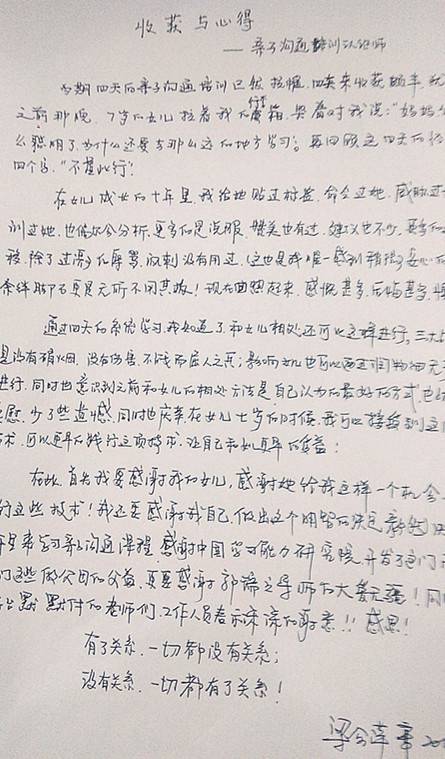 收获与心得
——亲子沟通培训认证师
为期四天的亲子沟通培训已然拉帷,四天来收获颇丰,
之前那晚,7岁的女儿拉着我的行李箱,哭着对我说:“妈妈
么聪明了,为什么还要去那么远的地方学习。再回顾这四天的
四个字,“不虚此行”!
在女儿成长的十年里,我给她贴过标签,命令过她,威胁过
训过她,也偶尔会分析,更多的是说服,赞美也有过,建议也不少,更多的
移,除了过分的辱骂,讽刺没有用过,(这也是我唯一感到稍微安心的
条绊脚石更是无所不用其极!现在回想起来,感慨甚多,后悔甚多,
通过四天的系统学习,我知道了和女儿相处还可以这样进行,三
是没有硝烟,没有伤害,不战而屈人之兵;影响女儿也可以通过润物细无
进行,同时也意识到之前和女儿的相处方法是自己认为的最好的方式,也
慰,少了些遗憾,同时也庆幸,在女儿七岁的时候,我可以接触到这
术,可以更早的践行这项技术,让自己和女儿更早的受益;
在此,首先我要感谢我的女儿,感谢她给我这样一个机会
行这些技术!我还要感谢我自己,做出这个明智的决定
来学习亲子沟通课程,感谢中国学习能力研究院,开发了这门
们这些做父母的父母,更要感谢郭瑞之导师的大爱无疆!同
以及默默付出的老师们,工作人员表示深深的敬意!!感恩!
有了关系,一切都没有关系;
没有关系,一切都有了关系!
梁会萍